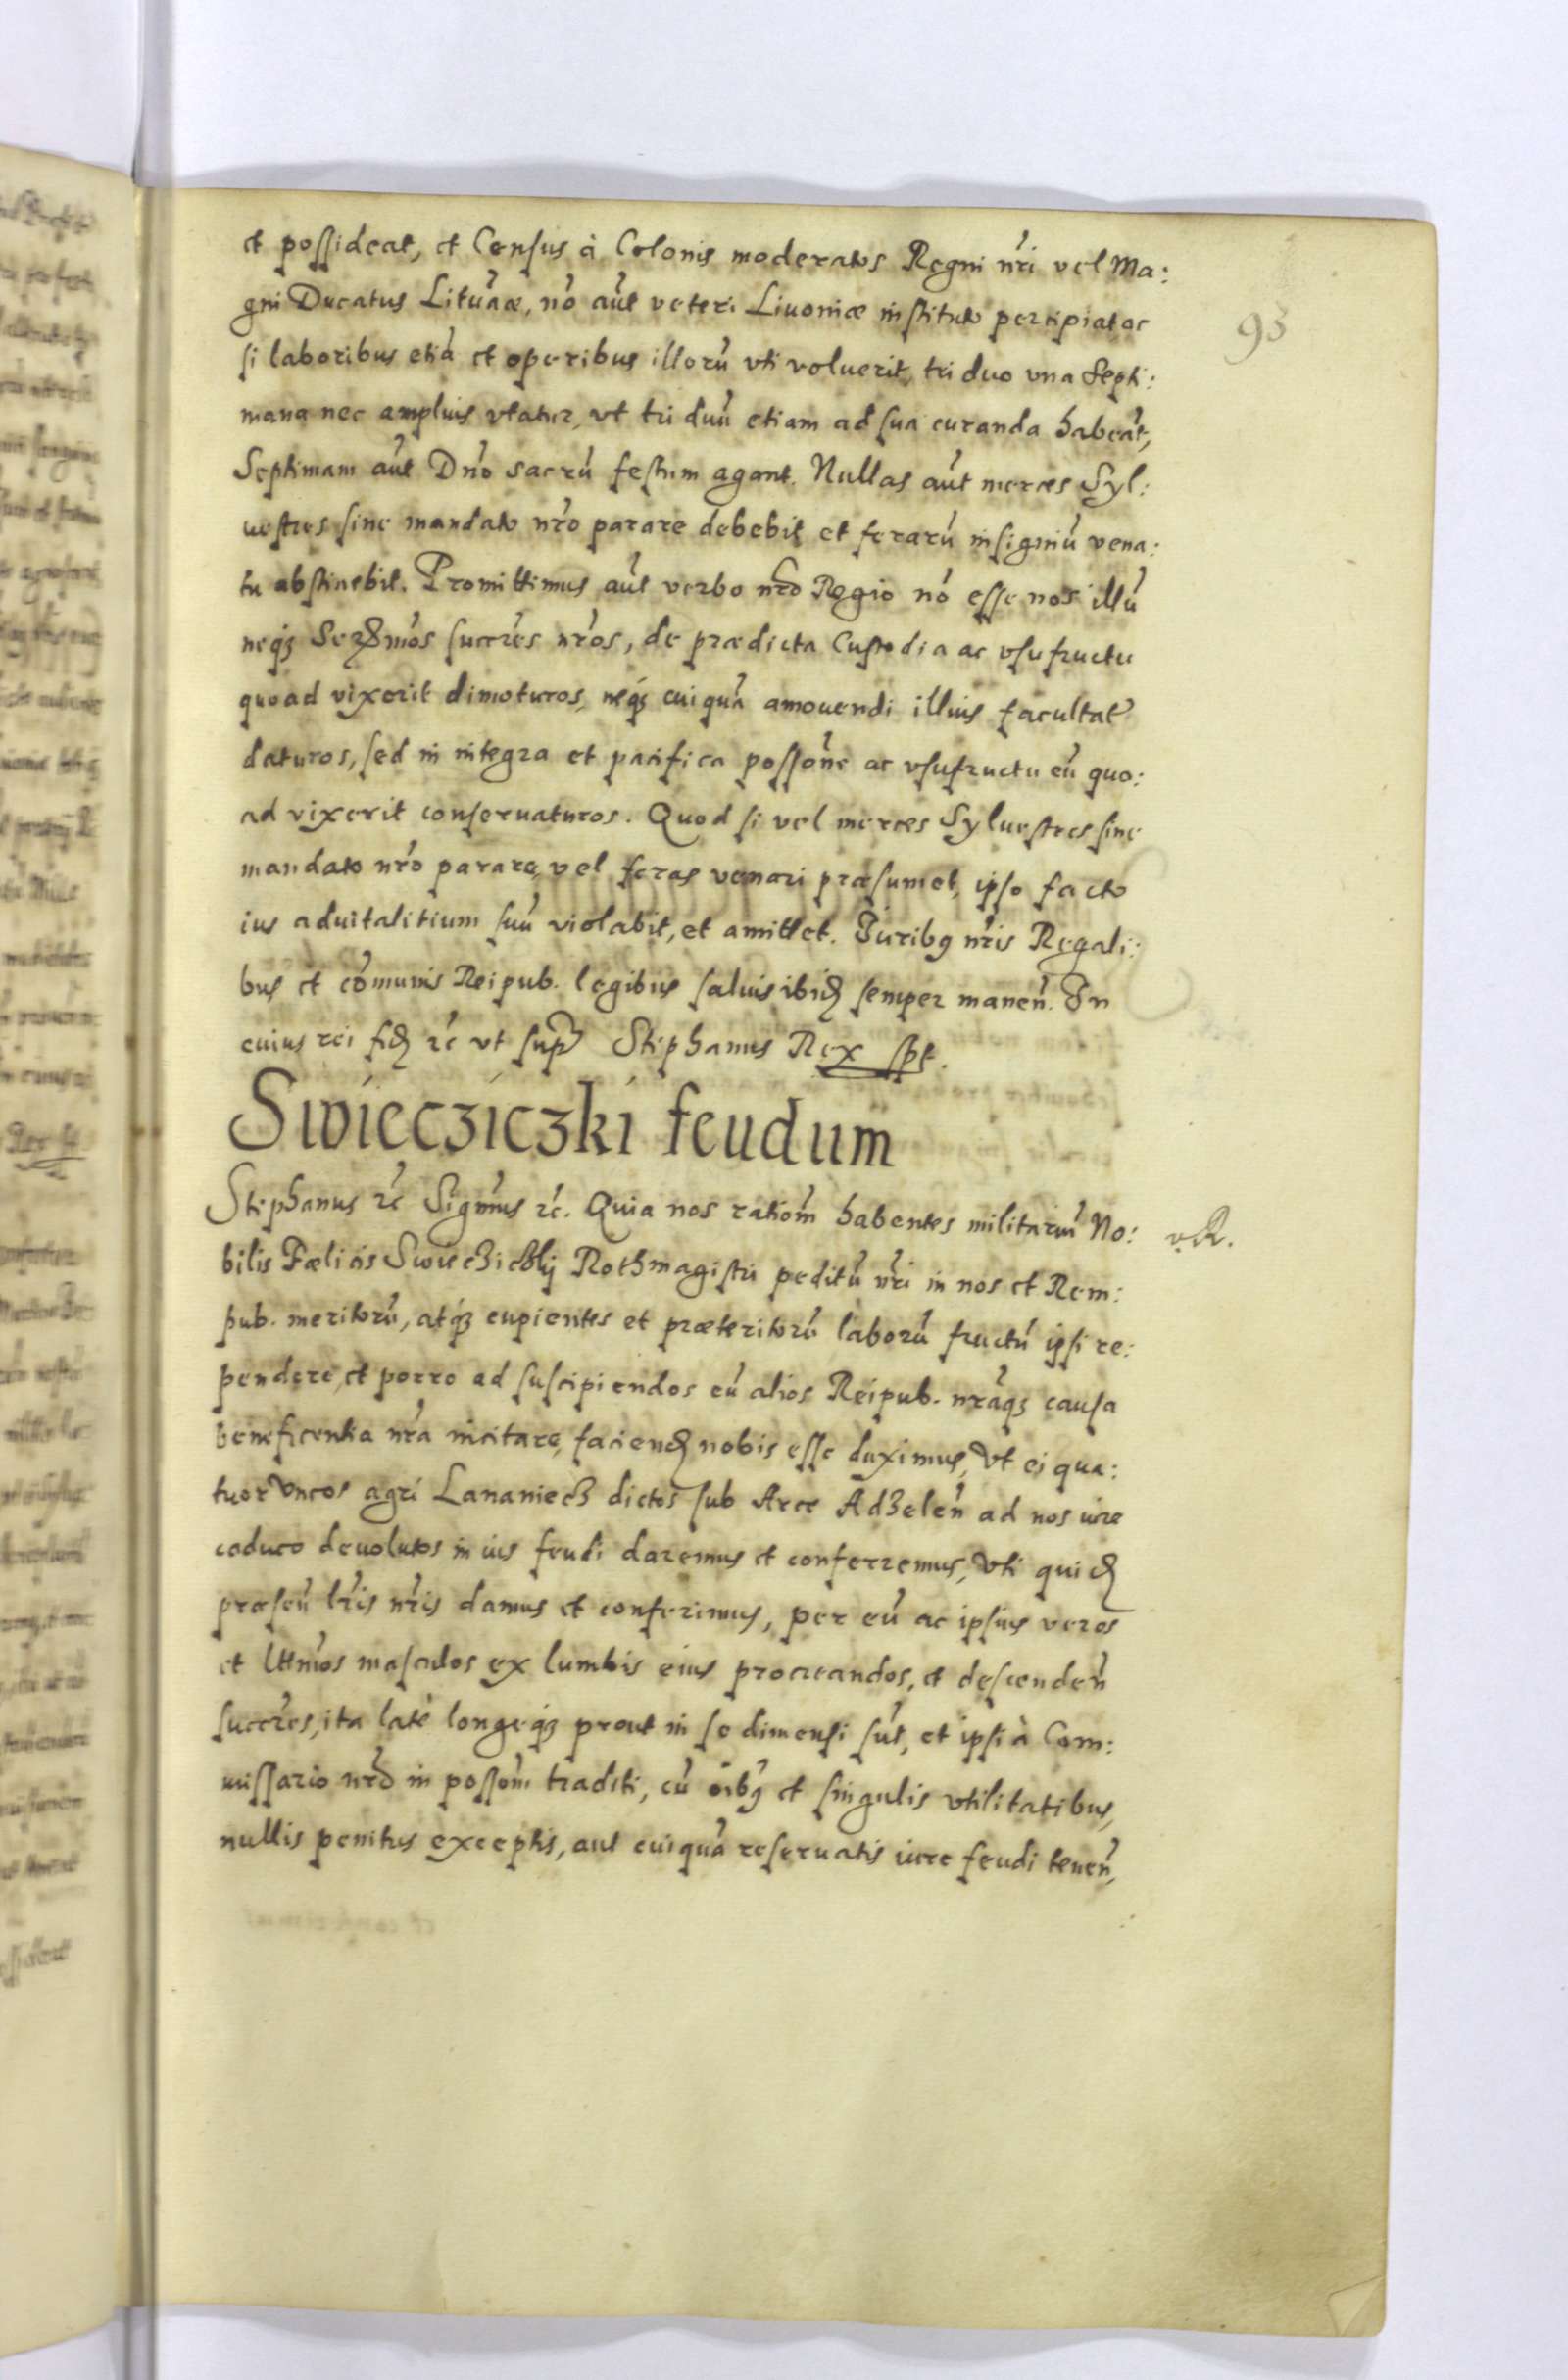 et possideat, et Census à Colonis moderatos Regni nr̃i vel Ma:
gni Ducatus Lituãæ, nõ aũt veteri Livoniæ instituto percipiat ac
si laboribus etiã et operibus illorũ vti voluerit, tri duo vna Septi:
mana nec amplius vtatur, vt tri duũ etiam ad sua curanda habeãt,
Septimam aũt Dño sacrũ festum agant. Nullas aũt merces Syl:
uestres sine mandato nr̃o parare debebit et ferarũ insigniũ vena:
tu abstinebit. Promittimus aũt verbo nr̃o Regio nõ esse nos illũ
neqꝫ Sermõs succr̃es nr̃os, de prædicta Custodia ac vsufructu
quoad vixerit dimoturos, neqꝫ cuiquã amouendi illius facultat̃
daturos, sed in integra et pacifica possõne ac vsufructu eũ quo:
ad vixerit conseruaturos. Quod si vel merces Syluestres sine
mandato nr̃o parare, vel feras venari præsumet, ipso facto
ius aduitalitium suũ violabit, et amittet. Juribꝫ nr̃is Regali:
bus et cõmunis Reipub. legibus saluis ibid semper maneñ. In
cuius rei fid ꝛc̃ vt supr̃ Stephanus Rex sst.
Swiecziczki feudum
Stephanus ꝛc̃ Sigñus ꝛc̃. Quia nos ratiom̃ habentes militariũ No:
bilis Fælicis Swiecziczkij Rothmagistri peditũ nr̃i in nos et Rem:
pub. meritorũ, atqꝫ cupientes et præteritorũ laborũ fructũ ipsi re:
pendere, et porro ad suscipiendos eũ alios Reipub. nr̃aqꝫ causa
beneficentia nr̃a incitare, faciend nobis esse duximus, Vt ei qua:
tuor Vncos agri Lananiecz dictos sub Arce Adzeleñ ad nos iure
caduco deuolutos in ius feudi daremus et conferremus, Vti quid
præseñ lr̃is nr̃is damus et conferimus, per eũ ac ipsius veros
et lttim̃os masculos ex lumbis eius procreandos, et descendeñ
succr̃es, ita latè longeqꝫ prout in se dimensi sũt, et ipsi à Com:
missario nr̃o in possom̃ traditi, cũ oĩbꝫ et singulis vtilitatibus,
nullis penitus exceptis, aut cuiquã reseruatis iure feudi teneñ,
93
v.R.